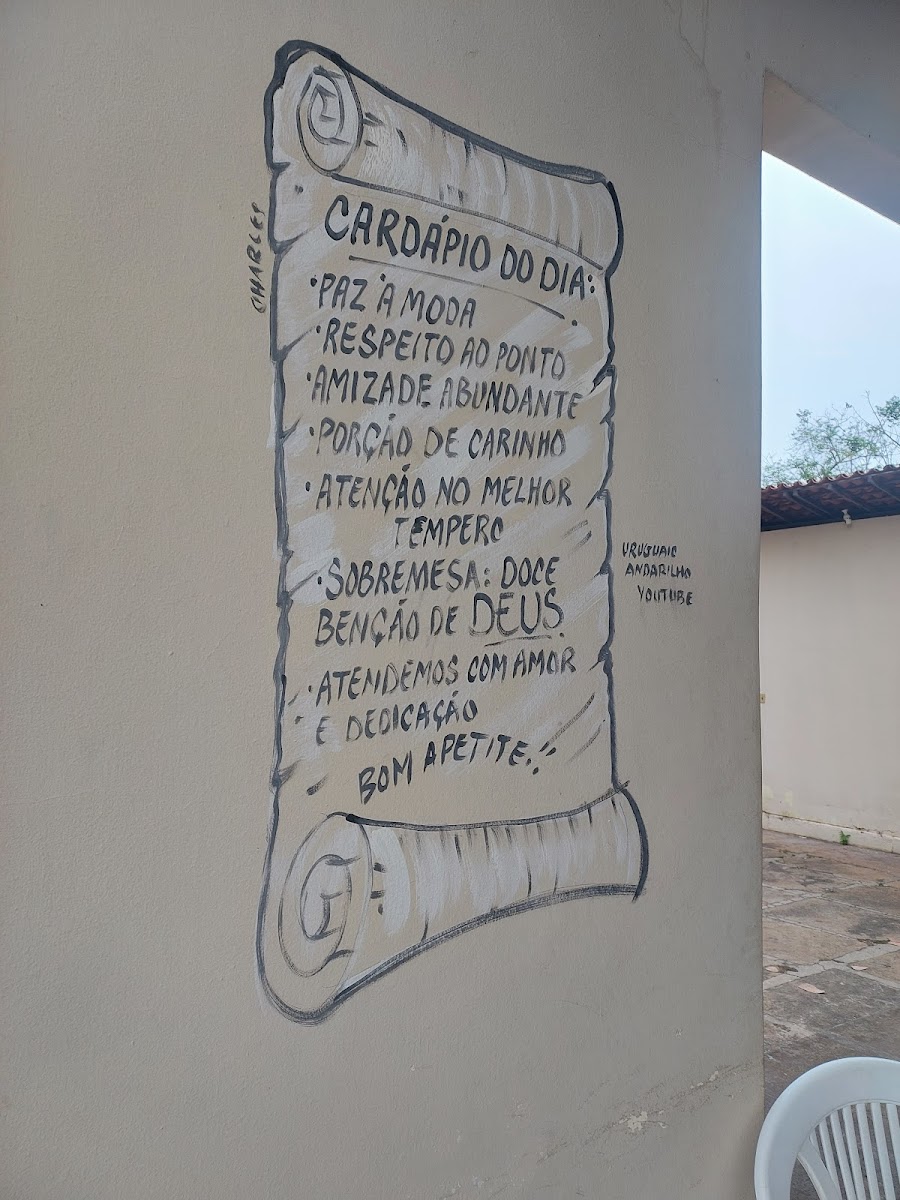 CHARLES
CARDÁPIO DO DIA:
·PAZ À MODA
·RESPEITO AO PONTO
·AMIZADE ABUNDANTE
·PORÇÃO DE CARINHO
·ATENÇÃO NO MELHOR
TEMPERO
·SOBREMESA: DOCE
BENÇÃO DE DEUS.
·ATENDEMOS COM AMOR
E DEDICAÇÃO
BOM APETITE!!
URUGUAIO
ANDARILHO
YOUTUBE